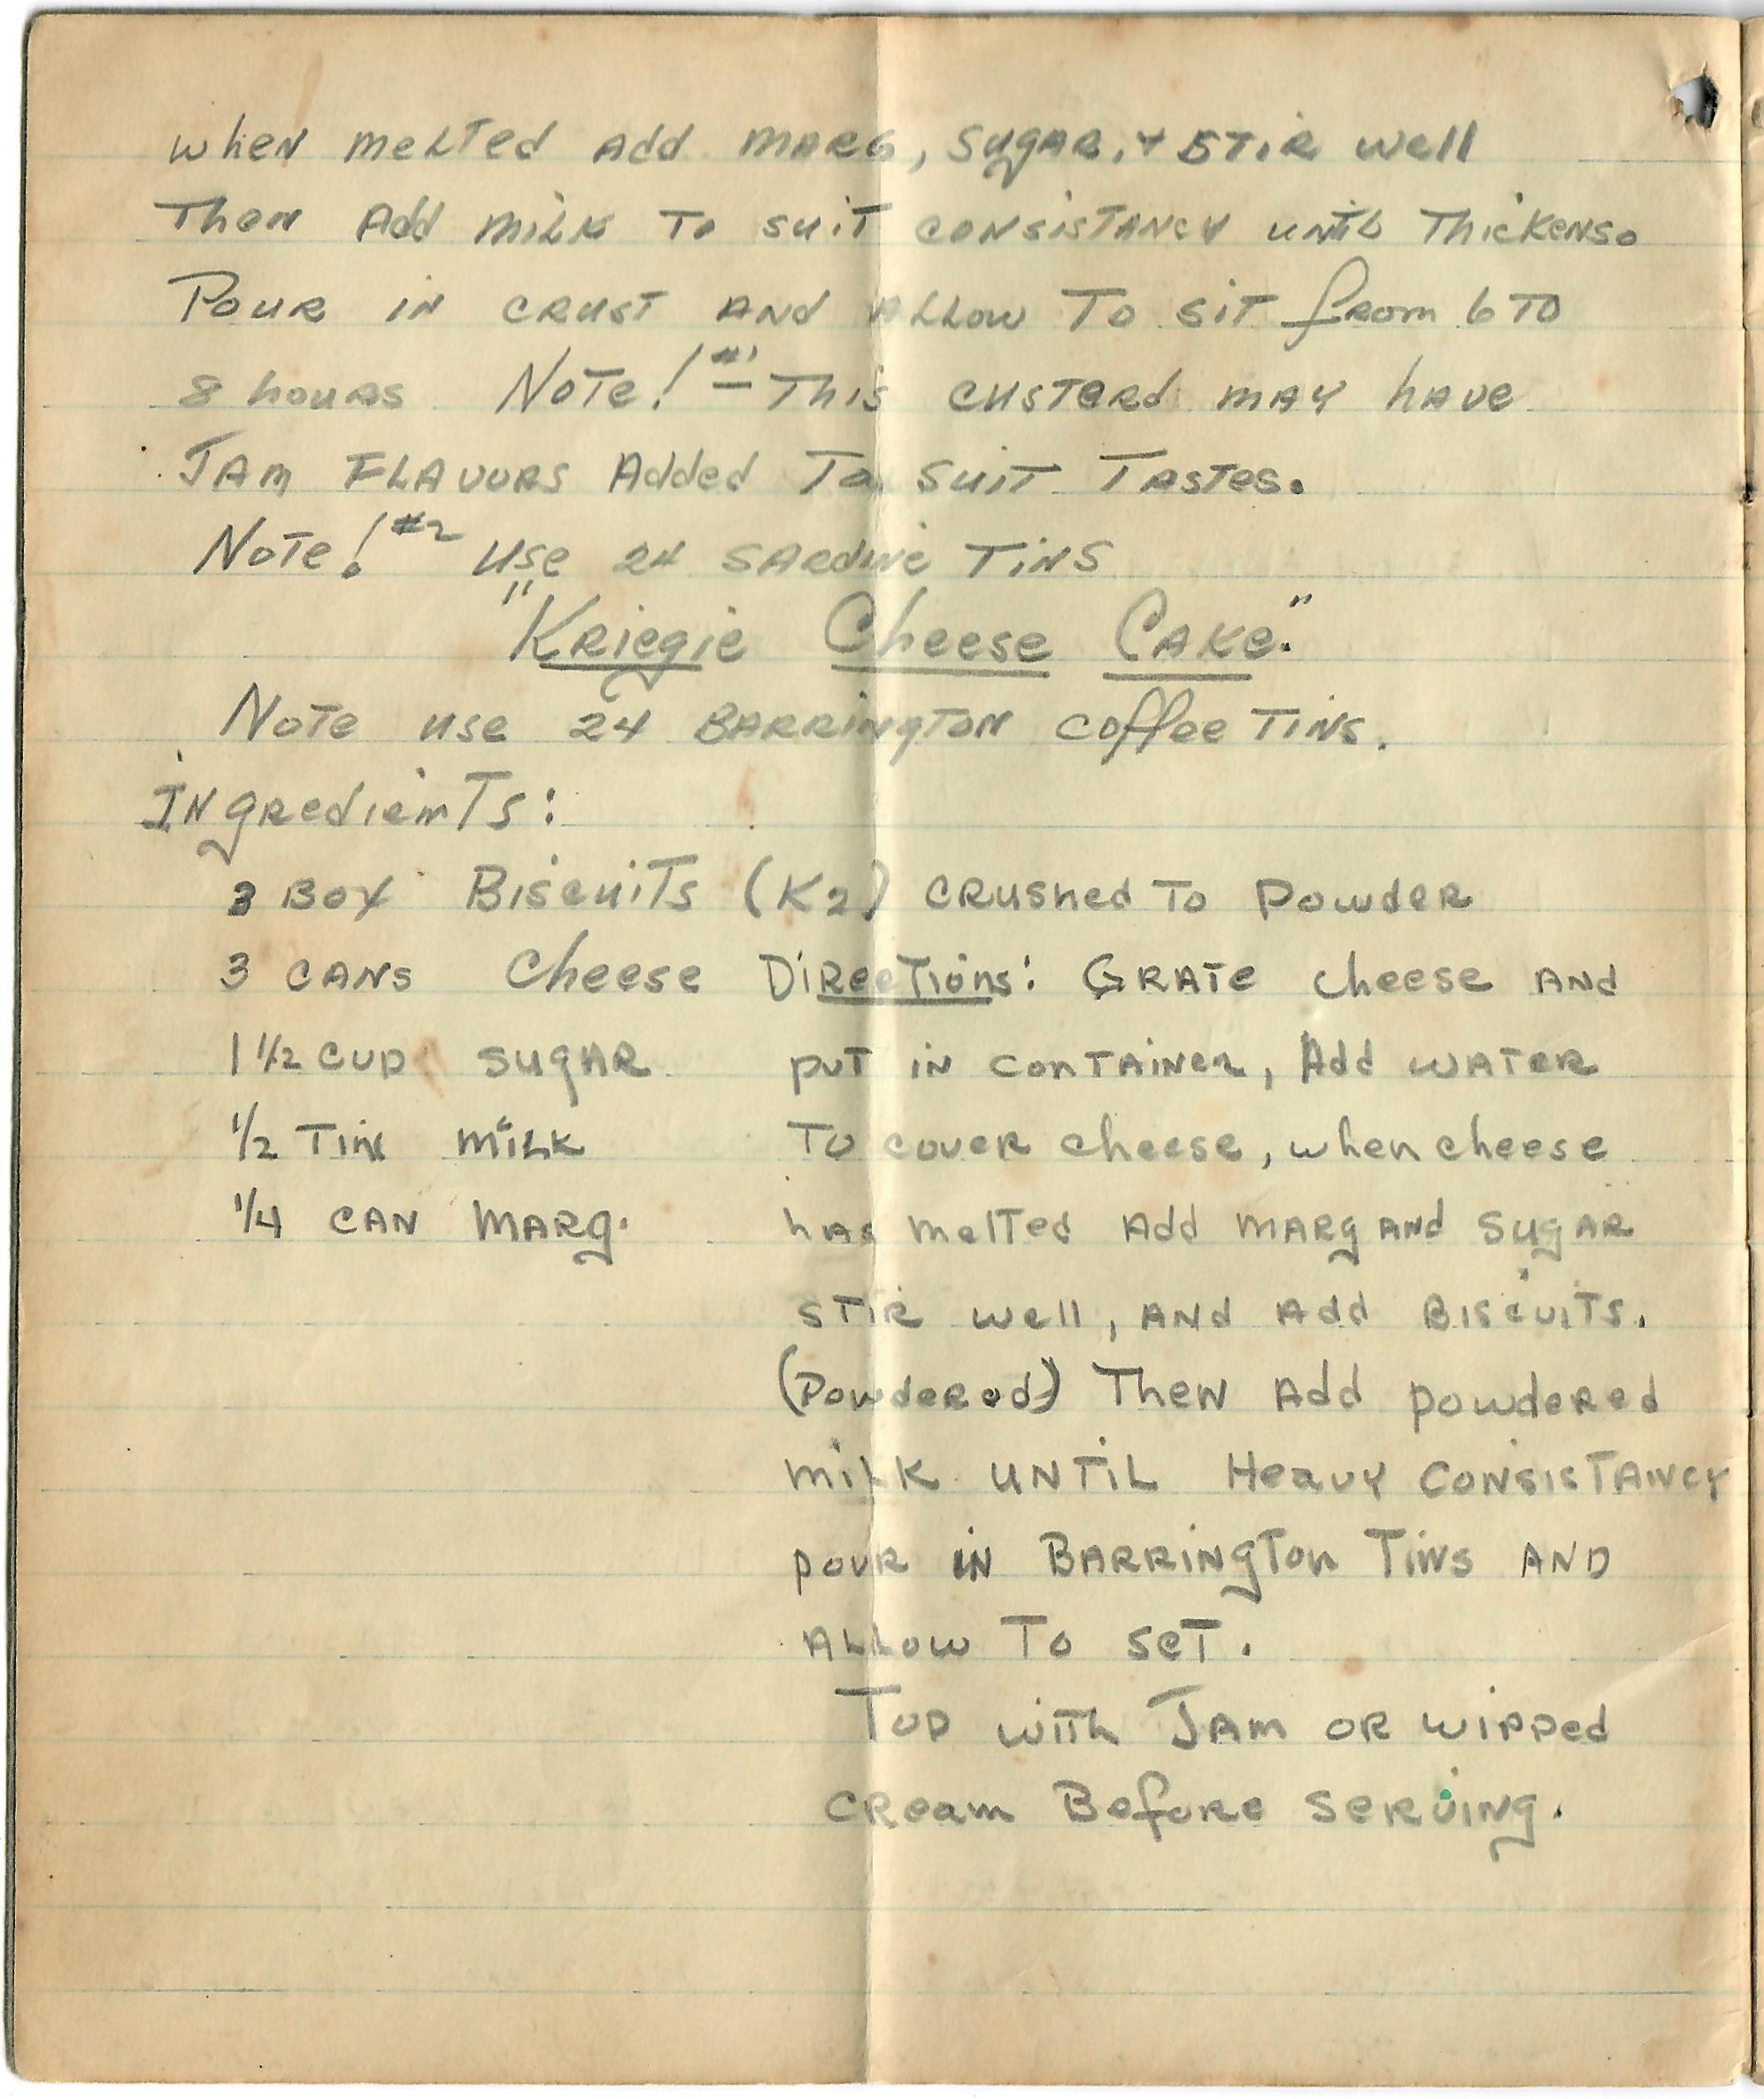 when melted add marg, sugar, + stir well
Then Add milk to suit consistancy until thickens.
Pour in crust and allow to sit from 6 to
8 hours Note! #1 — This custerd may have
Jam flavors Added To suit Tastes.
Note! #2 Use 24 sardine tins
"Kriegie Cheese Cake."
Note use 24 Barrington coffee tins.
Ingredients:
3 Box Biscuits (K2) crushed to powder
3 cans cheese Directions: Grate cheese and
1 1/2 cup sugar put in container, Add water
1/2 Tin milk to cover cheese, when cheese
1/4 can marg. has melted add marg and sugar
stir well, and add biscuits.
(Powdered) Then add powdered
milk until heavy consistancy
pour in Barrington Tins and
allow to set.
Top with Jam or wipped
cream Before serving.